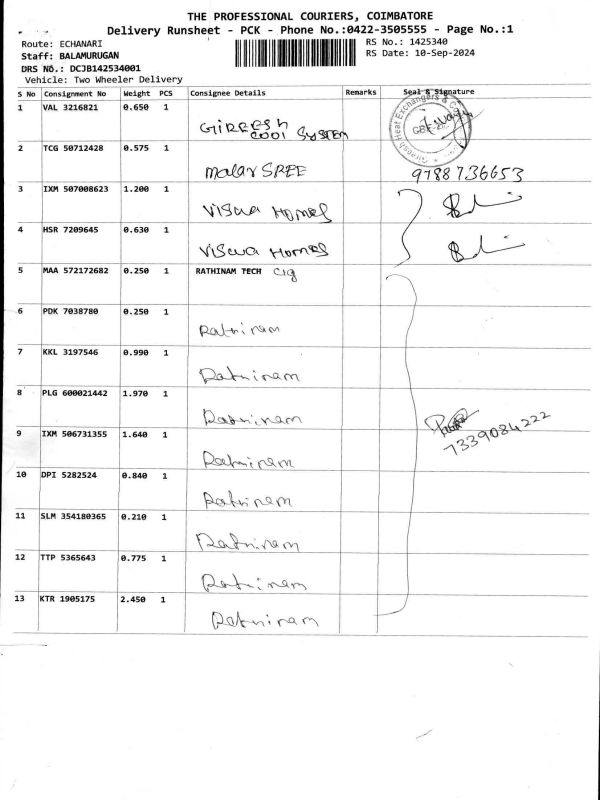 THE PROFESSIONAL COURIERS, COIMBATORE
Delivery Runsheet - PCK - Phone No.:0422-3505555 - Page No.:1
Route: ECHANARI
RS No.: 1425340
Staff: BALAMURUGAN
RS Date: 10-Sep-2024
DRS NO.: DCJB142534001
Vehicle: Two Wheeler Delivery
S No Consignment No Weight PCS Consignee Details Remarks Seal & Signature
1 VAL 3216821 0.650 1 GIREESH
COOl SYSTEM
Gireesh Heat Exchangers &
2 TCG 50712428 0.575 1 malar SREE 9788736653
3 IXM 507008623 1.200 1 Viswa Homes
4 HSR 7209645 0.630 1 Viswa Homes
5 MAA 572172682 0.250 1 RATHINAM TECH
6 PDK 7038780 0.250 1 Ratninam
7 KKL 3197546 0.990 1 Ratninam
8 PLG 600021442 1.970 1 Ratninam
7339084222
9 IXM 506731355 1.640 1 Ratninam
10 DPI 5282524 0.840 1 Ratninam
11 SLM 354180365 0.210 1 Ratninam
12 TTP 5365643 0.775 1 Ratninam
13 KTR 1905175 2.450 1 Ratninam